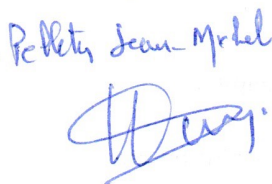 Pelletier Jean-Michel